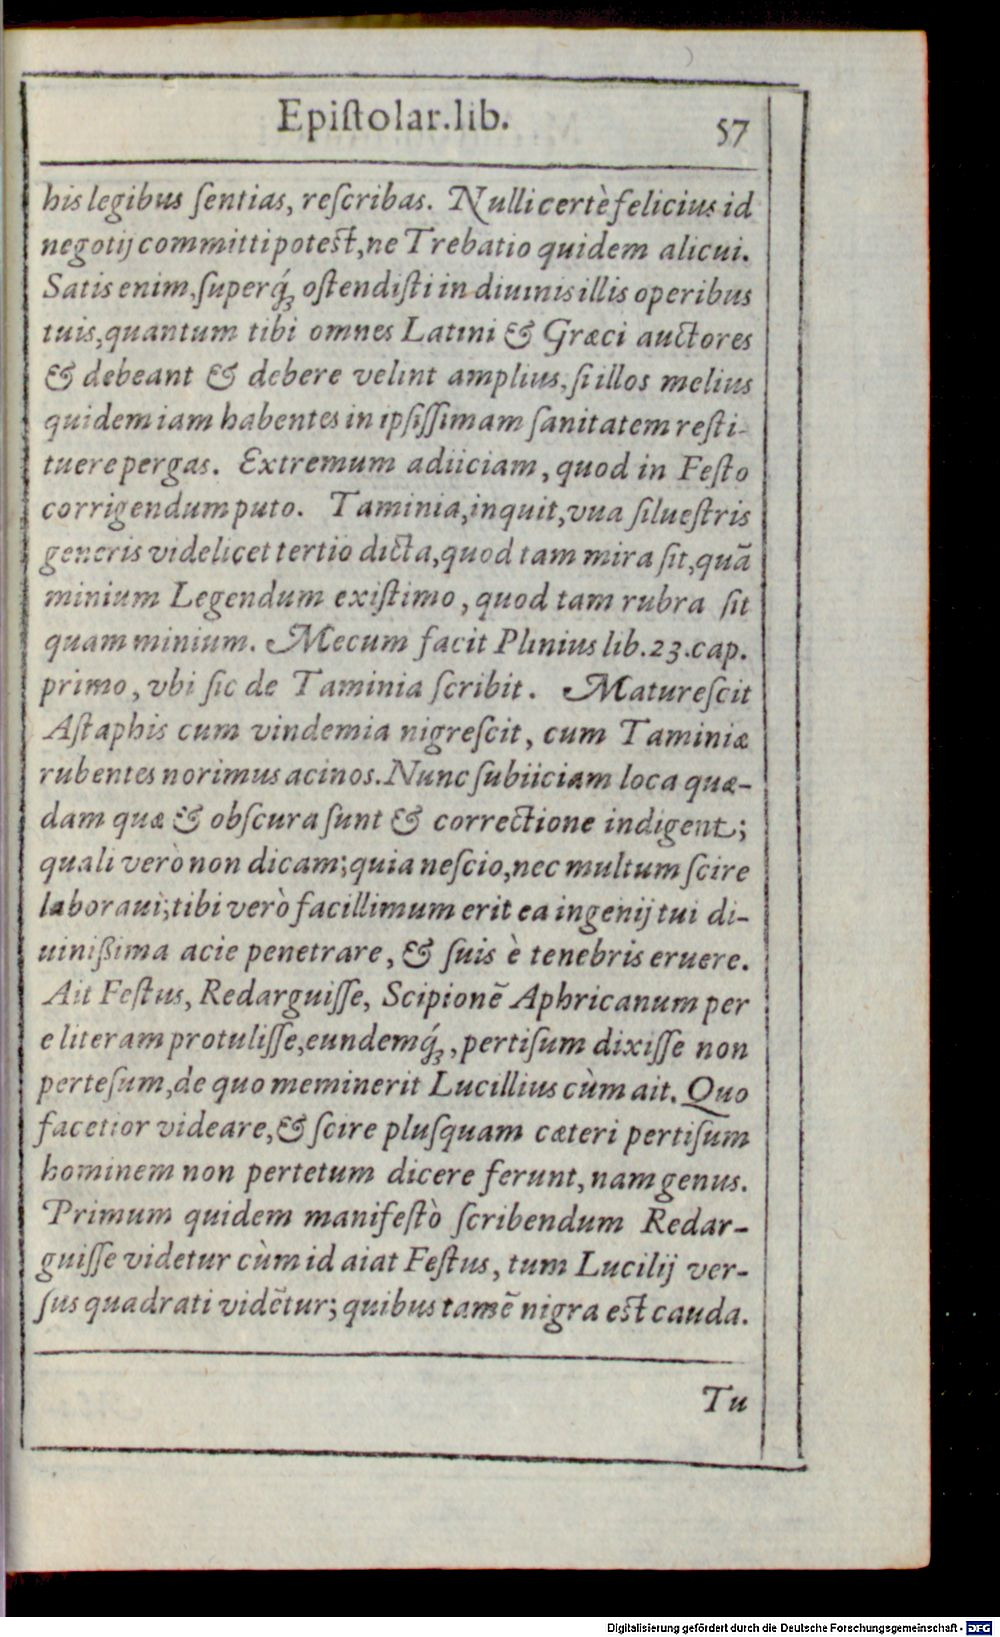 Epiſtolar.lib.
57
his legibus ſentias, reſcribas. Nulli certè felicius id
negotij committi poteſt, ne Trebatio quidem alicui.
Satis enim, ſuperq́; oſtendiſti in diuinis illis operibus
tuis, quantum tibi omnes Latini & Græci auctores
& debeant & debere velint amplius, ſi illos melius
quidem iam habentes in ipſiſſimam ſanitatem reſti-
tuere pergas. Extremum adiiciam, quod in Feſto
corrigendum puto. Taminia, inquit, vua ſilueſtris
generis videlicet tertio dicta, quod tam mira ſit, quã
minium Legendum exiſtimo, quod tam rubra ſit
quam minium. Mecum facit Plinius lib. 23. cap.
primo, vbi ſic de Taminia ſcribit. Matureſcit
Aſtaphis cum vindemia nigreſcit, cum Taminiæ
rubentes norimus acinos. Nunc ſubiiciam loca quæ-
dam quæ & obſcura ſunt & correctione indigent;
quali verò non dicam; quia neſcio, nec multum ſcire
laboraui; tibi verò facillimum erit ea ingenij tui di-
uinißima acie penetrare, & ſuis è tenebris eruere.
Ait Feſtus, Redarguiſſe, Scipionẽ Aphricanum per
e literam protuliſſe, eundemq́;, pertiſum dixiſſe non
perteſum, de quo meminerit Lucillius cùm ait. Quo
facetior videare, & ſcire pluſquam cæteri pertiſum
hominem non pertetum dicere ferunt, nam genus.
Primum quidem manifeſtò ſcribendum Redar-
guiſſe videtur cùm id aiat Feſtus, tum Lucilij ver-
ſus quadrati vidẽtur; quibus tamẽ nigra eſt cauda.
Tu
Digitalisierung gefördert durch die Deutsche Forschungsgemeinschaft - DFG